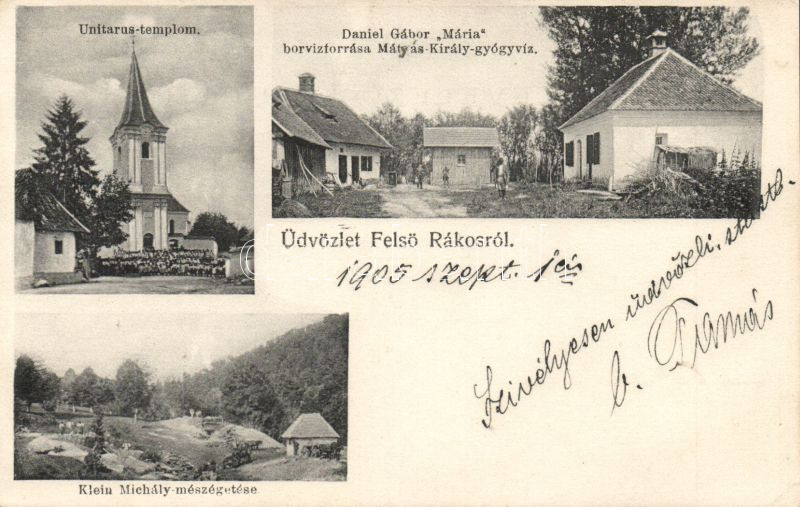 Unitarus-templom.
Daniel Gábor „Mária"
borvizforrása Mátyás-Király-gyógyvíz.
Üdvözlet Felsö Rákosról.
1905 szept.
Szivélyesen üdvözli
b. Tamás
Klein Michály-mészégetése